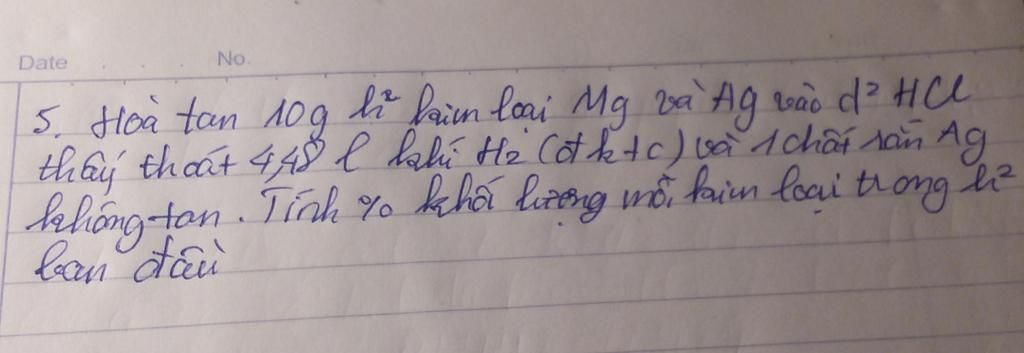 Date . . . No.
5. Hoà tan 10g h² kim loại Mg và Ag vào d² HCl
thấy thoát 4,48 l khí H₂ (đktc) và 1 chất rắn Ag
không tan. Tính % khối lượng mỗi kim loại trong h²
ban đầu